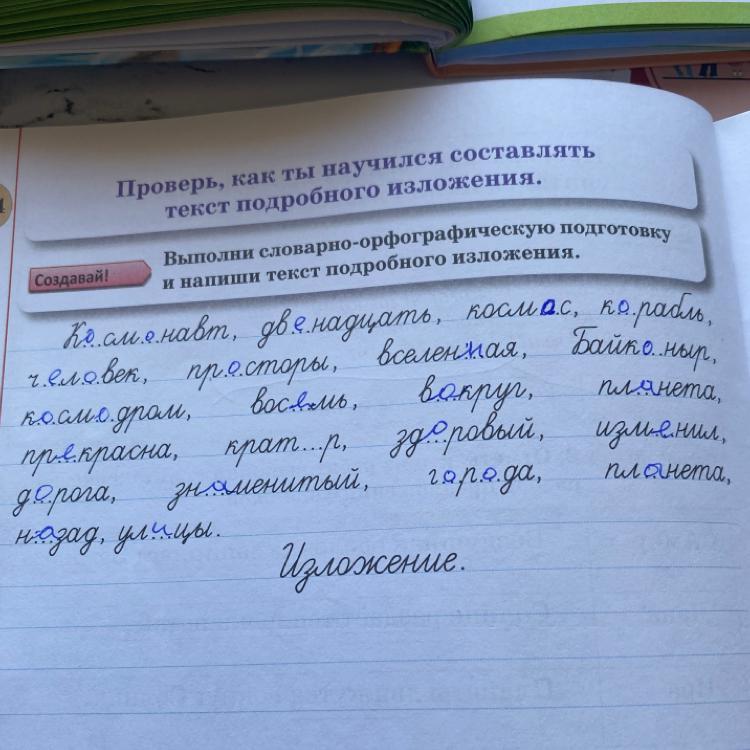 Проверь, как ты научился составлять
текст подробного изложения.
Создавай!
Выполни словарно-орфографическую подготовку
и напиши текст подробного изложения.
Космонавт, двенадцать, космас, корабль,
человек, просторы, вселенная, Байконыр,
космодром, восемь, вокруг, планета,
прекрасна, крат...р, здоровый, изменил,
дорога, знаменитый, города, планета,
назад, улицы.
Изложение.